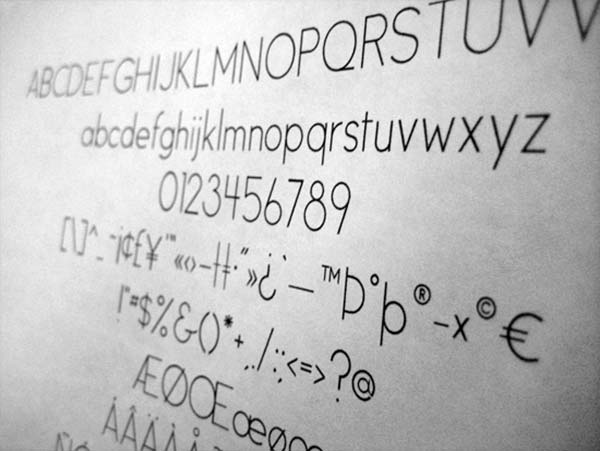 ABCDEFGHIJKLMNOPQRSTUV
abcdefghijklmnopqrstuvwxyz
0123456789
[\]^_¨¡¢£¥"'«‹›–†‡·”»¿¨`—™Þ°þ®-×©€
!"#$%&()*+,./:;<=>?@
ÆØŒæøœ
ÁÂÄÀÅ
Ñ